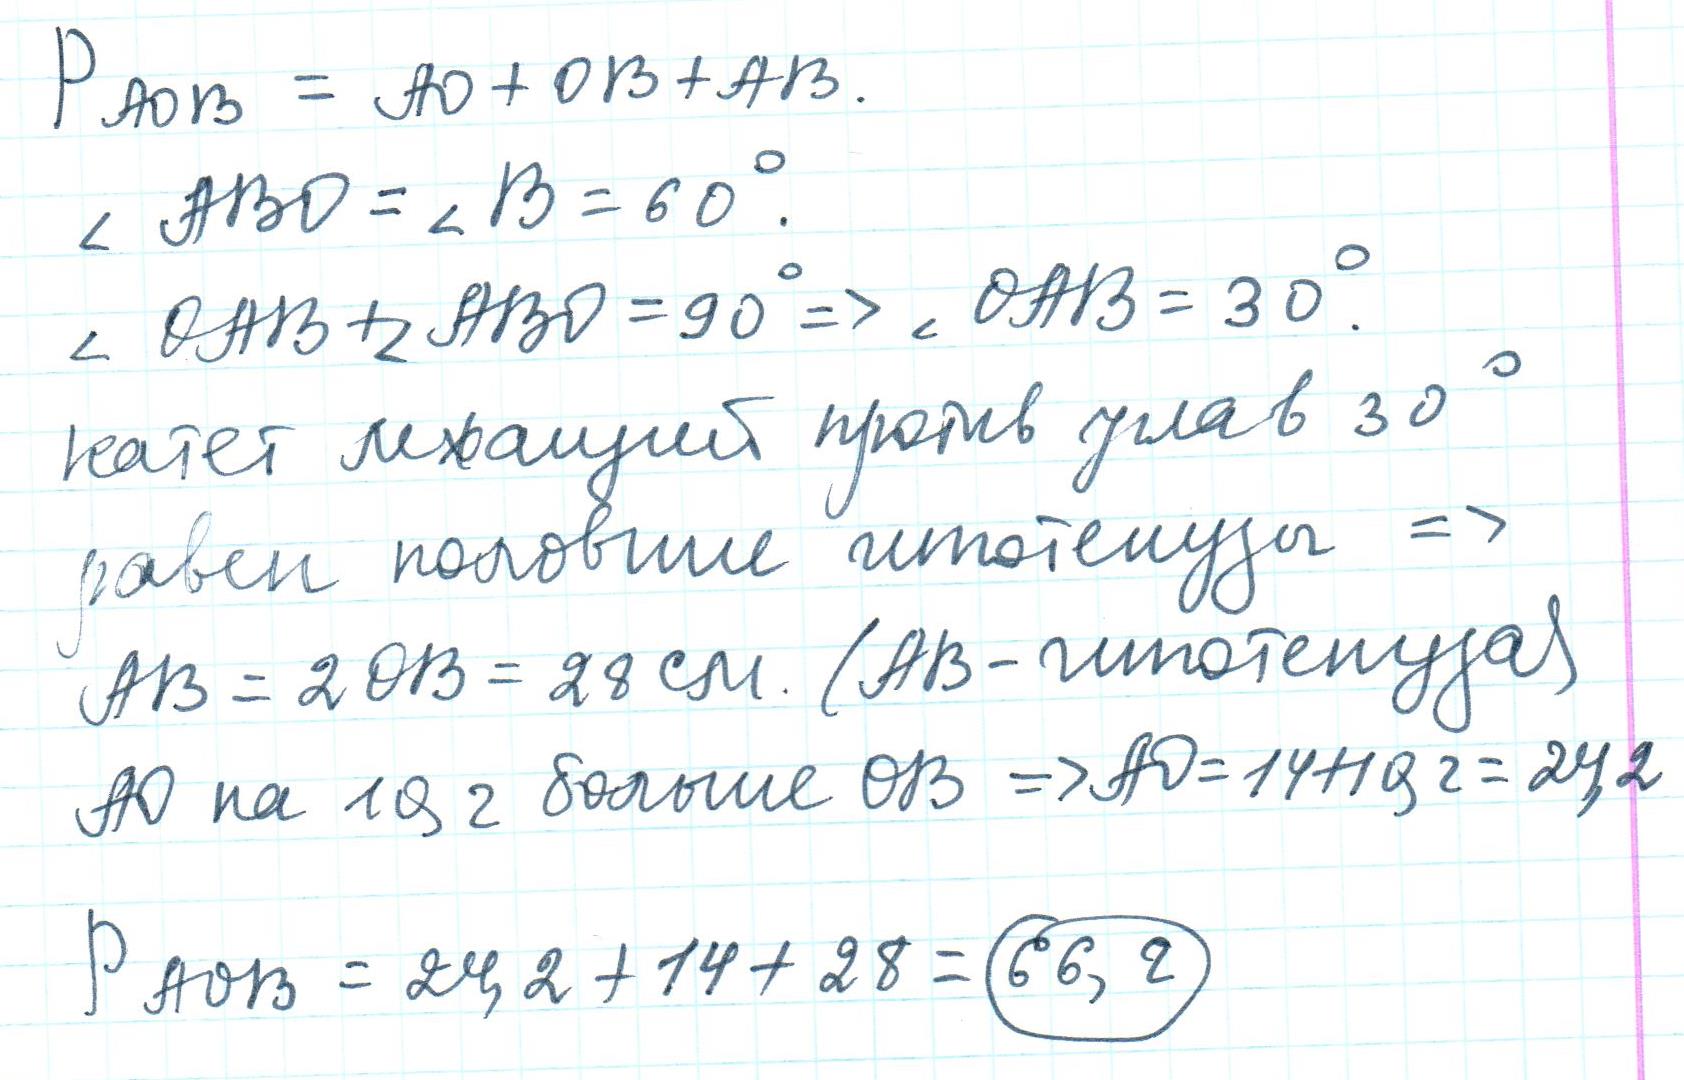 P AOB = AO + OB + AB.
∠ ABO = ∠ B = 60°.
∠ OAB + ∠ ABO = 90° => ∠ OAB = 30°.
катет лежащий против угла в 30°
равен половине гипотенузы =>
AB = 2 OB = 28 см. (AB - гипотенуза)
AO на 10,2 больше OB => AO = 14 + 10,2 = 24,2
P AOB = 24,2 + 14 + 28 = 66,2